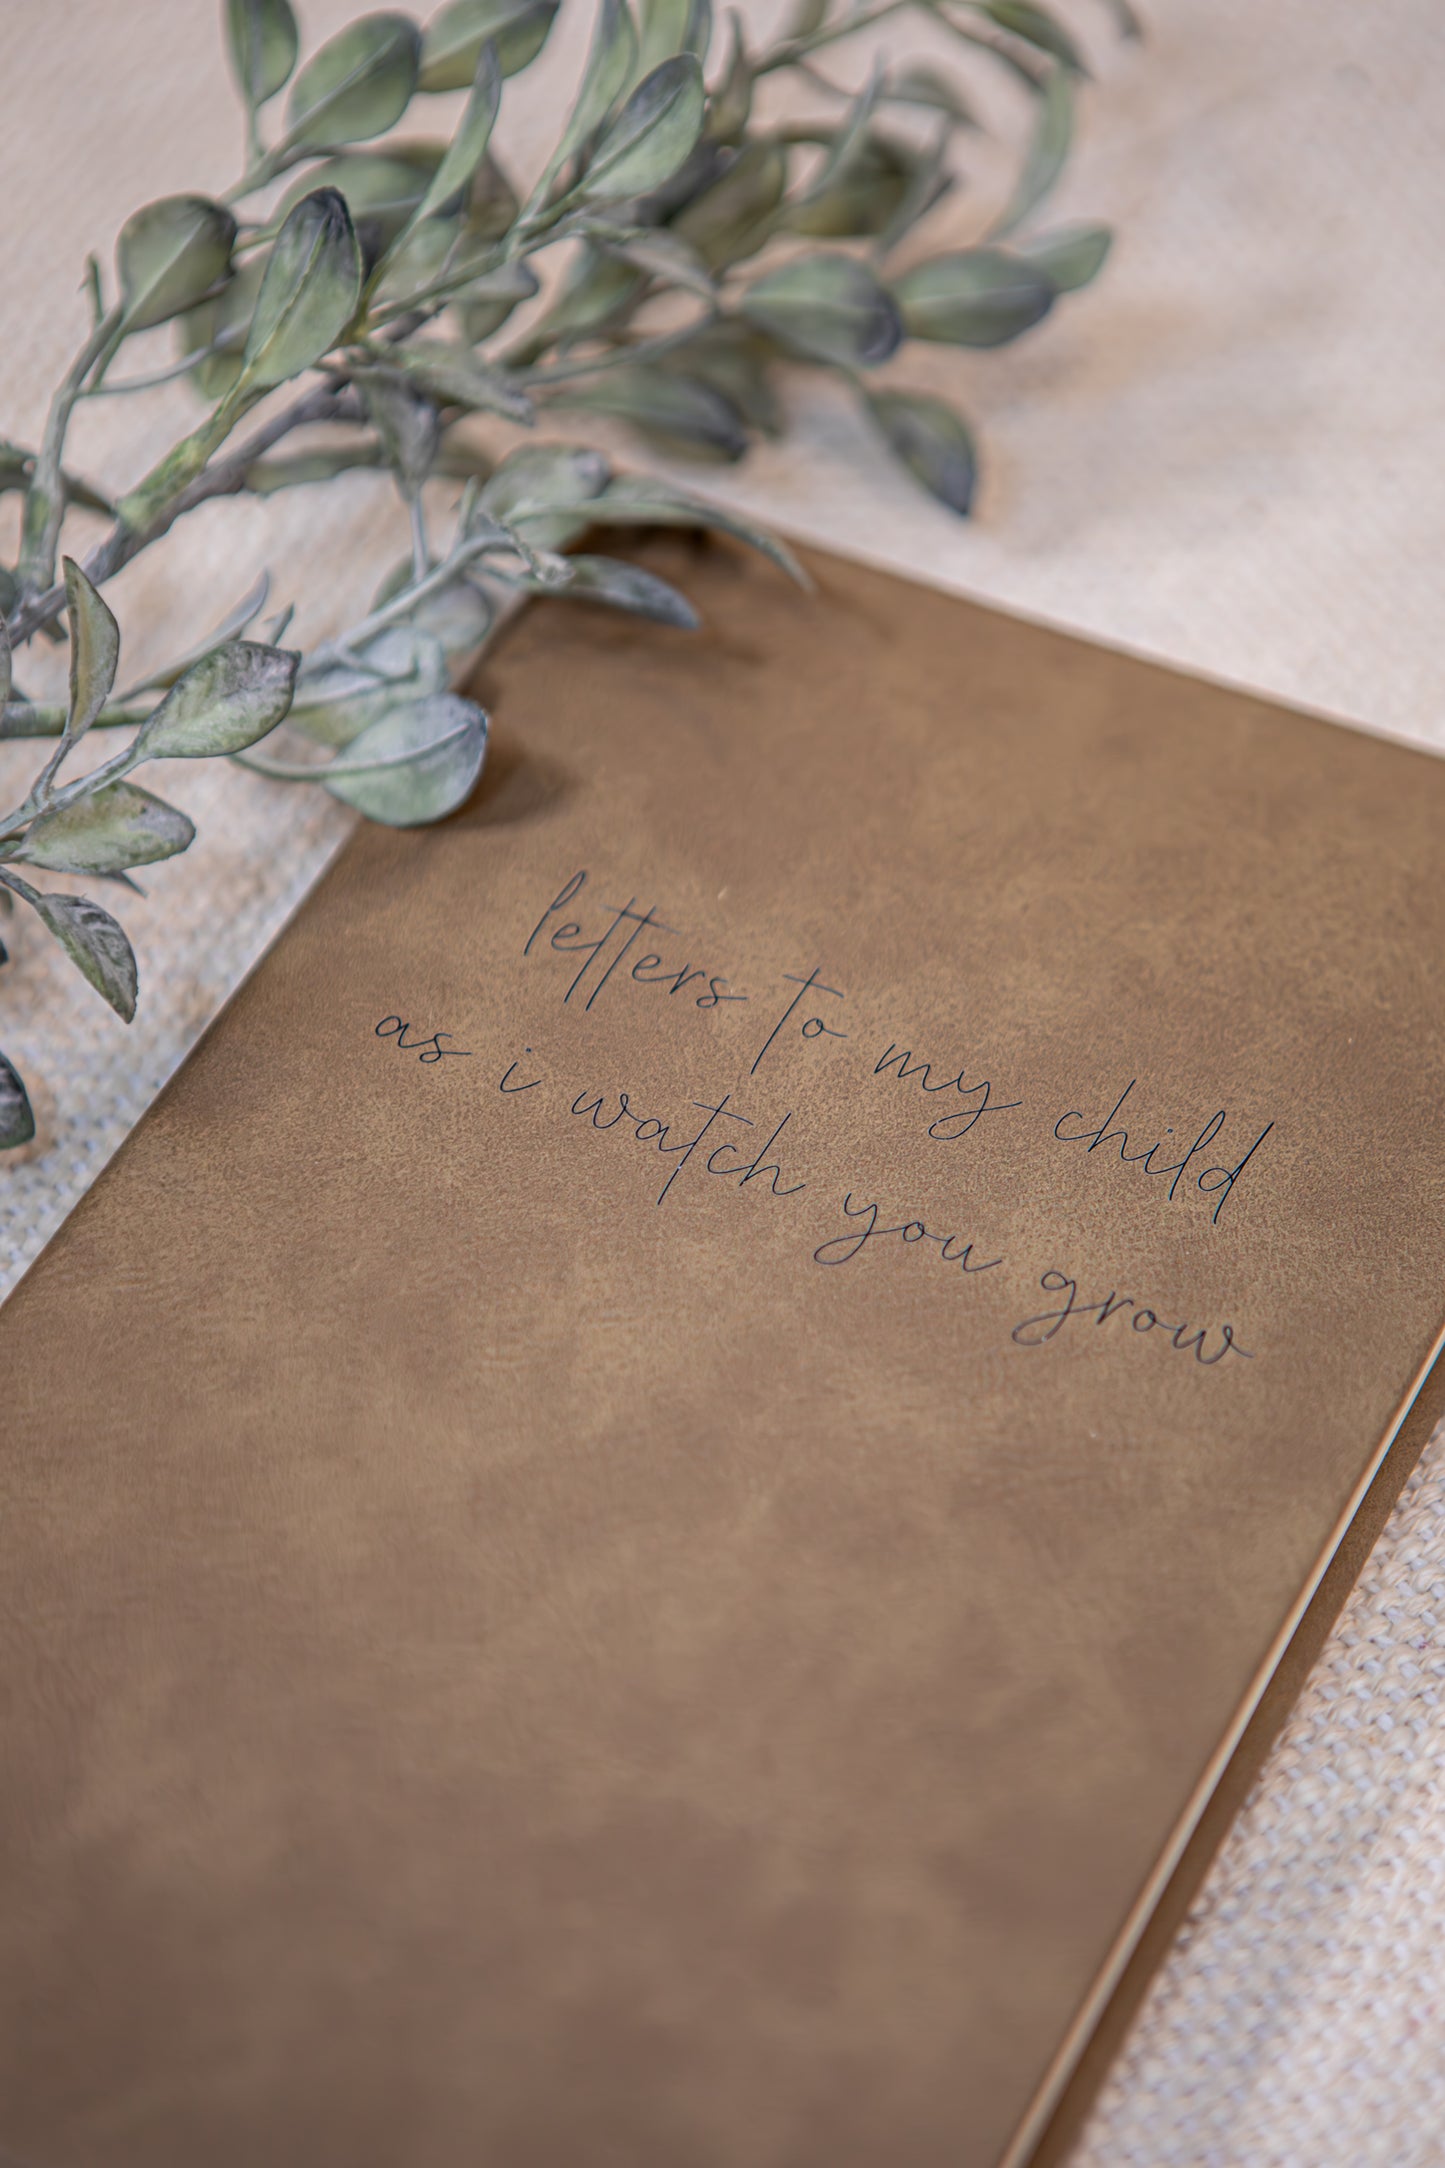 letters to my child
as i watch you grow